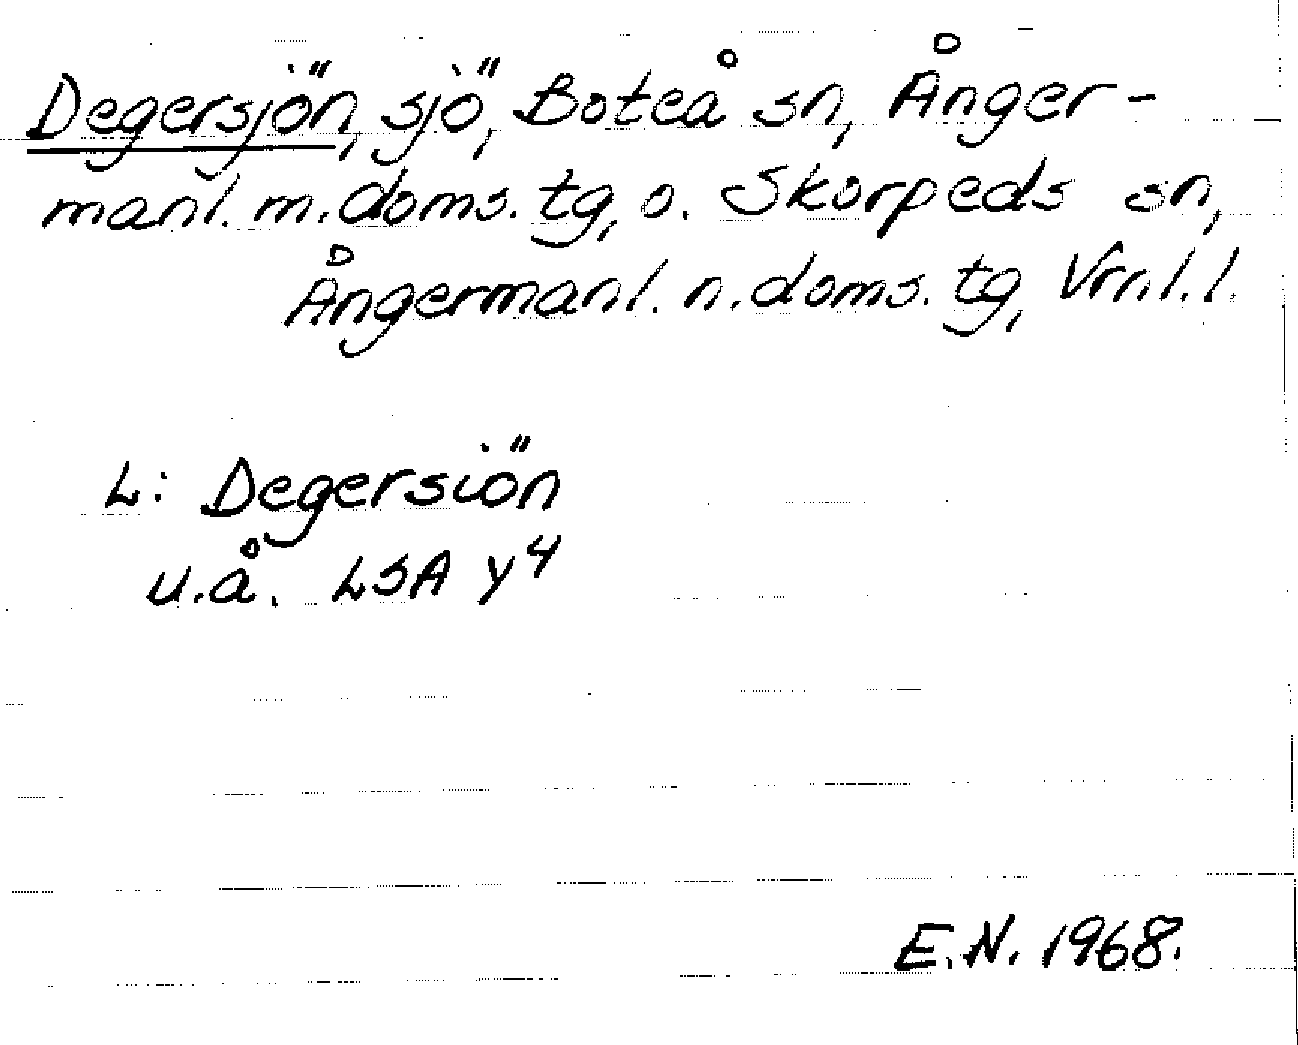 Degersjön, sjö, Boteå sn, Ånger-
manl. m. doms. tg, o. Skorpeds sn,
Ångermanl. n. doms. tg, Vrnl. l.
L: Degersiön
u.å. LSA y4
E.N. 1968.